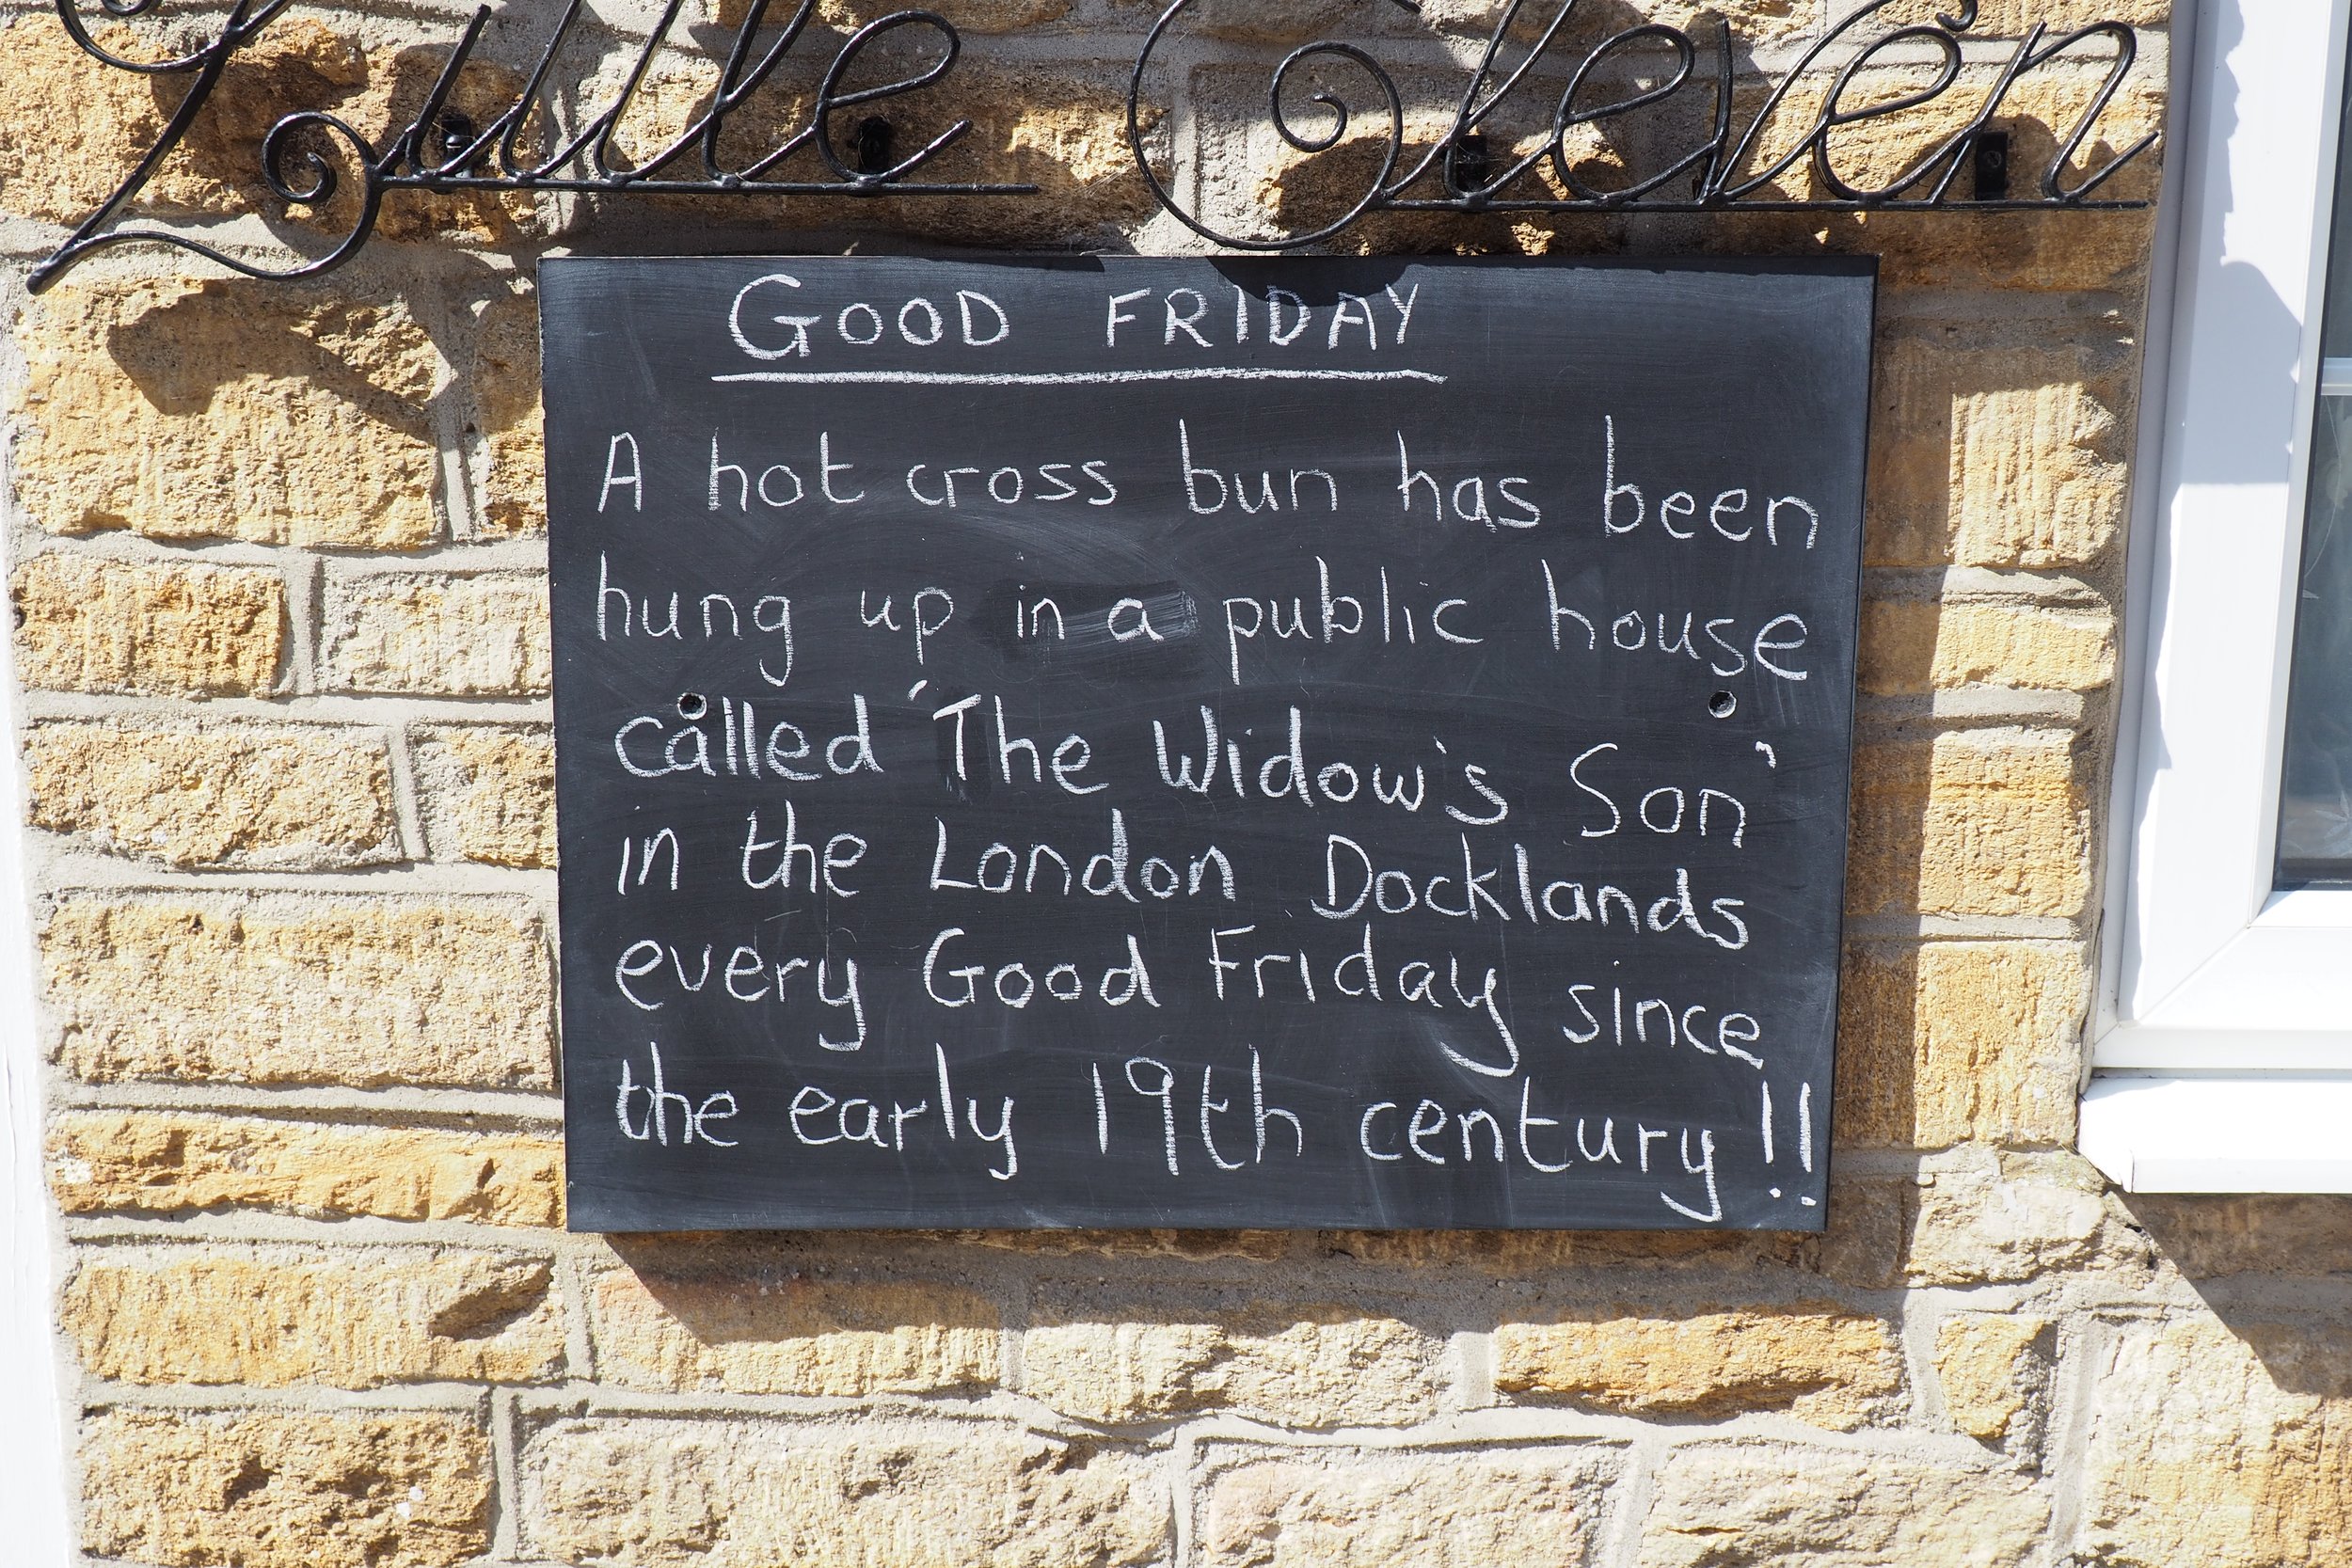 Little Steven
GOOD FRIDAY
A hot cross bun has been
hung up in a public house
called 'The Widow's Son'
in the London Docklands
every Good Friday since
the early 19th century!!